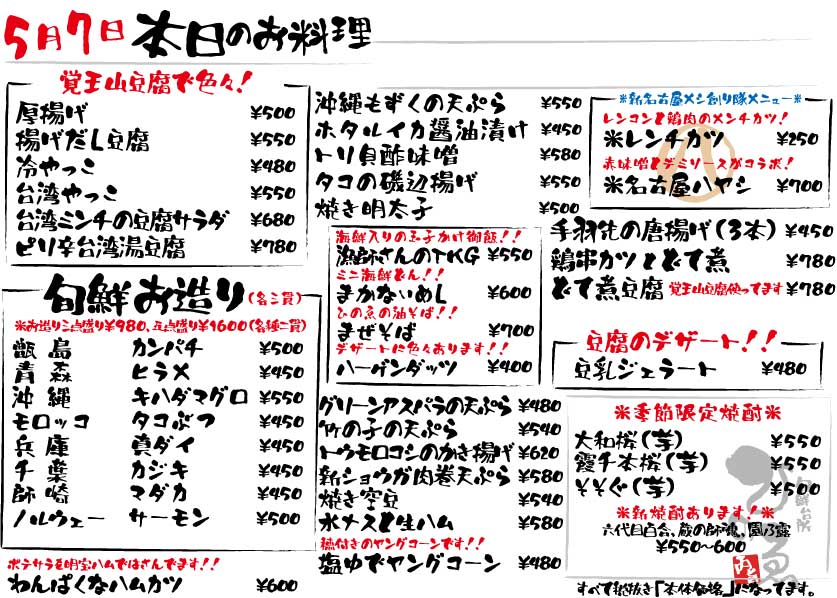 5月7日 本日のお料理
覚王山豆腐で色々!
厚揚げ ¥500
揚げだし豆腐 ¥550
冷やっこ ¥480
台湾やっこ ¥550
台湾ミンチの豆腐サラダ ¥680
ピリ辛台湾湯豆腐 ¥780
旬鮮お造り(各三貫)
※お造り三点盛り¥980、五点盛り¥1600(各種二貫)
甑島 カンパチ ¥500
青森 ヒラメ ¥450
沖縄 キハダマグロ ¥550
モロッコ タコぶつ ¥450
兵庫 真ダイ ¥450
千葉 カジキ ¥450
師崎 マダカ ¥450
ノルウェー サーモン ¥500
ポテサラを明宝ハムではさんでます!!
わんぱくなハムカツ ¥600
沖縄もずくの天ぷら ¥550
ホタルイカ醤油漬け ¥450
トリ貝酢味噌 ¥580
タコの磯辺揚げ ¥550
焼き明太子 ¥500
海鮮入りの玉子かけ御飯!!
漁師さんのTKG ¥550
ミニ海鮮どん!!
まかないめし ¥600
ひの気の油そば!!
まぜそば ¥700
デザートに色々あります!!
ハーゲンダッツ ¥400
グリーンアスパラの天ぷら ¥480
竹の子の天ぷら ¥540
トウモロコシのかき揚げ ¥620
新ショウガ肉巻天ぷら ¥580
焼き空豆 ¥540
水ナスと生ハム ¥580
穂付きのヤングコーンです!!
塩ゆでヤングコーン ¥480
※新名古屋メシ創り隊メニュー※
レンコンと鶏肉のメンチカツ!
※レンチカツ ¥250
赤味噌とデミソースがコラボ!
※名古屋ハヤシ ¥700
手羽先の唐揚げ(3本) ¥450
鶏串カツとどて煮 ¥780
どて煮豆腐 覚王山豆腐使ってます ¥780
豆腐のデザート!!
豆乳ジェラート ¥480
※季節限定焼酎※
大和桜(芋) ¥550
霞千本桜(芋) ¥550
そそぐ(芋) ¥500
※新焼酎あります!※
六代目百合、蔵の師魂、園乃露
¥550~600
すべて税抜き「本体価格」になってます。
旬鮮台所